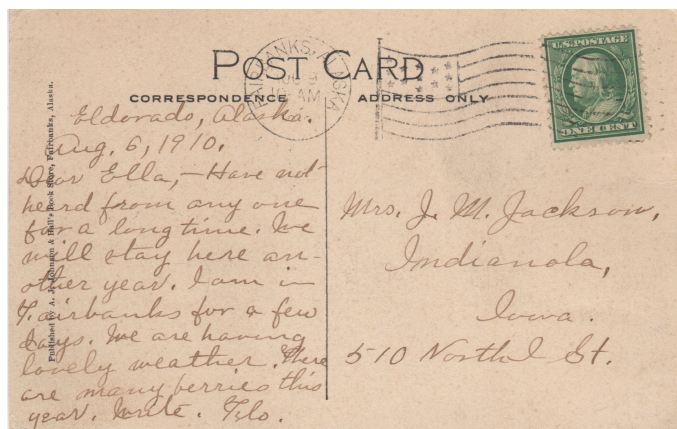 POST CARD
CORRESPONDENCE
ADDRESS ONLY
FAIRBANKS, ALASKA
AM
U.S. POSTAGE
ONE CENT
Published by A. J. Johnson & Hall's Book Store, Fairbanks, Alaska.
Eldorado, Alaska.
Aug. 6, 1910.
Dear Ella,- Have not
heard from any one
for a long time. We
will stay here an-
other year. I am in
Fairbanks for a few
days. We are having
lovely weather. There
are many berries this
year. Write. Flo.
Mrs. J. M. Jackson,
Indianola,
Iowa.
510 North I St.